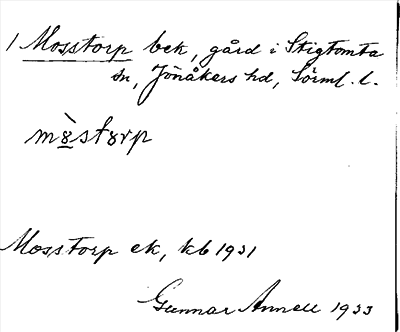 1 Mosstorp bek, gård i Stigtomta
sn, Jönåkers hd, Sörml. l.
mòstorp
Mosstorp ek, kb 1931
Gunnar Annell 1933